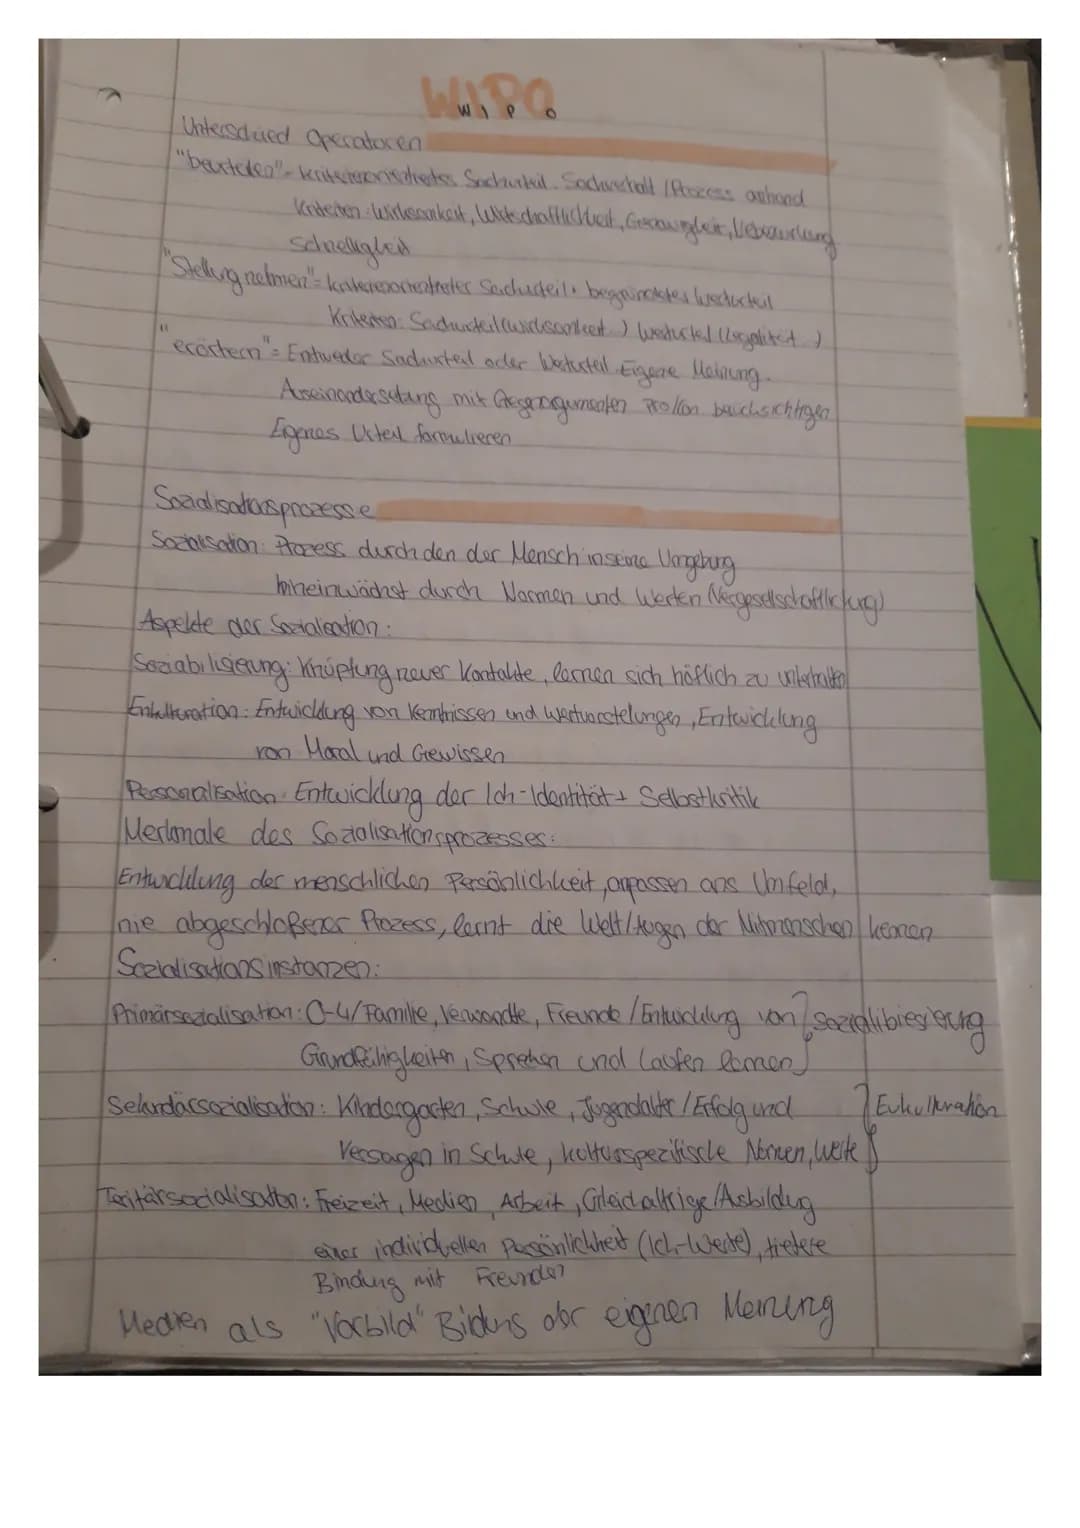 WIPO
W I P O
Unterschied Operatoren
"beurteilen"- kriterienorientiertes Sachurteil. Sachverhalt / Prozess anhand
Kriterien: Wirksamkeit, Wirtschaftlichkeit, Genauigkeit,
Schnelligkeit
"Stellung nehmen"= kriterienorientiertes Sachurteil + begründetes Werturteil
Kriterien: Sachurteil (Wirksamkeit ) Werturteil (Legalität )
"erörtern"= Entweder Sachurteil oder Werturteil. Eigene Meinung.
Auseinandersetzung mit Gegenargumenten
Eigenes Urteil formulieren
Sozialisationsprozesse
Sozialisation: Prozess durch den der Mensch in seine Umgebung
hineinwächst durch Normen und Werten (Vergesellschaftlichung)
Aspekte der Sozialisation:
Soziabiligierung: Knüpfung neuer Kontakte, lernen sich höflich zu unterhalten
Enkulturation: Entwicklung von Kenntnissen und Wertvorstelungen, Entwicklung
von Moral und Gewissen
Personalisation: Entwicklung der Ich-Identität + Selbstkritik
Merkmale des Sozialisationsprozesses:
Entwicklung der menschlichen Persönlichkeit, anpassen ans Umfeld,
nie abgeschloßener Prozess, lernt die Welt/Augen der Mitmenschen kennen
Sozialisationsinstanzen:
Primärsozialisation: 0-4/Familie, Verwandte, Freunde / Entwicklung von } Sozialibiesierung
Grundfähigkeiten, Sprechen und Laufen lernen
Sekundärsozialisation: Kindergarten, Schule, Jugendalter / Erfolg und } Enkulturation
Versagen in Schule, kulturspezifische Normen, Werte
Teritärsozialisation: Freizeit, Medien, Arbeit, Gleichaltrige/Asbildug
einer individuellen Persönlichkeit (Ich-Werte), tiefere
Bindung mit Freunden
Medien als "Vorbild" Bidung der eigenen Meinung